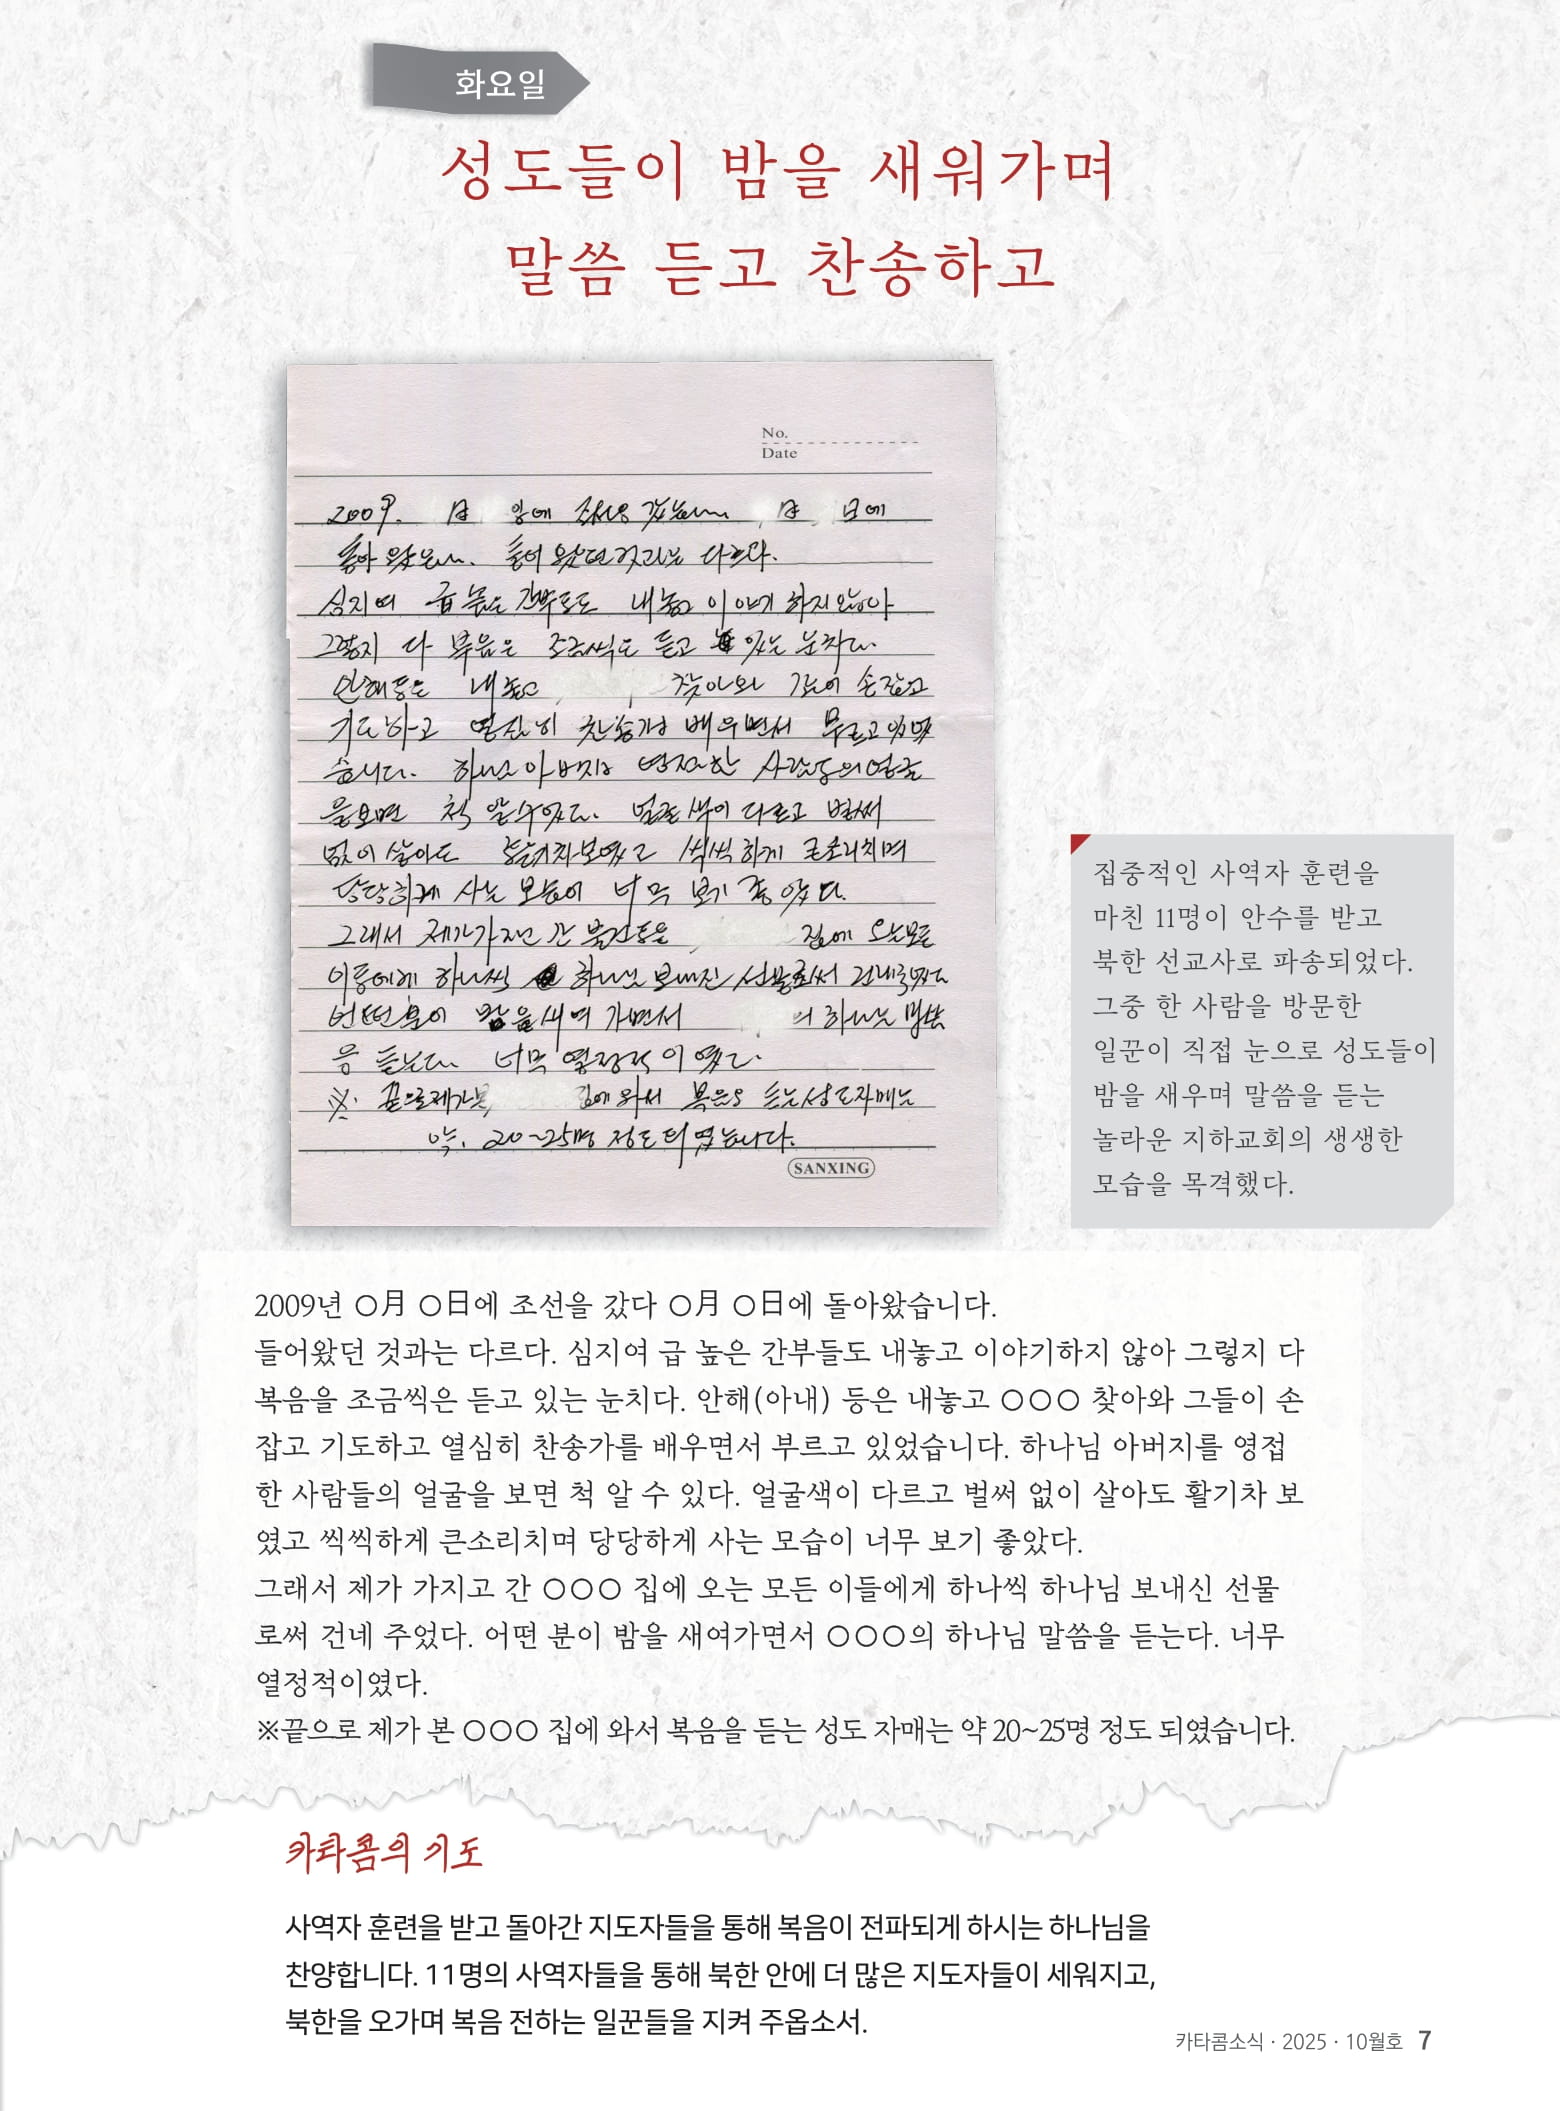 화요일
성도들이 밤을 새워가며
말씀 듣고 찬송하고
No.
Date
2009. 月 일에 조선을 갔습니다 月 日에
돌아 왔습니다. 들어 왔던것과는 다르다.
심지여 급 높은 간부들도 내놓고 이야기 하지 않아
그렇지 다 복음은 조금씩은 듣고 있는 눈치다.
안해등은 내놓고 찾아와 손잡고
기도하고 열심히 찬송가를 배우면서 부르고 있었
습니다. 하나님 아버지를 영접한 사람들의 얼굴
을보면 척 알수있다. 얼굴색이 다르고 벌써
없이 살아도 활기차보였고 씩씩하게 큰소리치며
당당하게 사는 모습이 너무 보기 좋았다.
그래서 제가가지고 간 집에 오는모든
이들에게 하나씩 하나님 보내신 선물로써 건네주었다
어떤 분이 밤을새여 가면서 의 하나님 말씀
을 듣는다. 너무 열정적이였다.
※. 끝으로제가본 집에 와서 복음을 듣는성도자매는
약. 20~25명 정도 되였습니다.
SANXING
집중적인 사역자 훈련을
마친 11명이 안수를 받고
북한 선교사로 파송되었다.
그중 한 사람을 방문한
일꾼이 직접 눈으로 성도들이
밤을 새우며 말씀을 듣는
놀라운 지하교회의 생생한
모습을 목격했다.
2009년 〇月 〇日에 조선을 갔다 〇月 〇日에 돌아왔습니다.
들어왔던 것과는 다르다. 심지여 급 높은 간부들도 내놓고 이야기하지 않아 그렇지 다
복음을 조금씩은 듣고 있는 눈치다. 안해(아내) 등은 내놓고 〇〇〇 찾아와 그들이 손
잡고 기도하고 열심히 찬송가를 배우면서 부르고 있었습니다. 하나님 아버지를 영접
한 사람들의 얼굴을 보면 척 알 수 있다. 얼굴색이 다르고 벌써 없이 살아도 활기차 보
였고 씩씩하게 큰소리치며 당당하게 사는 모습이 너무 보기 좋았다.
그래서 제가 가지고 간 〇〇〇 집에 오는 모든 이들에게 하나씩 하나님 보내신 선물
로써 건네 주었다. 어떤 분이 밤을 새여가면서 〇〇〇의 하나님 말씀을 듣는다. 너무
열정적이였다.
※끝으로 제가 본 〇〇〇 집에 와서 복음을 듣는 성도 자매는 약 20~25명 정도 되였습니다.
카타콤의 기도
사역자 훈련을 받고 돌아간 지도자들을 통해 복음이 전파되게 하시는 하나님을
찬양합니다. 11명의 사역자들을 통해 북한 안에 더 많은 지도자들이 세워지고,
북한을 오가며 복음 전하는 일꾼들을 지켜 주옵소서.
카타콤소식 · 2025 · 10월호 7